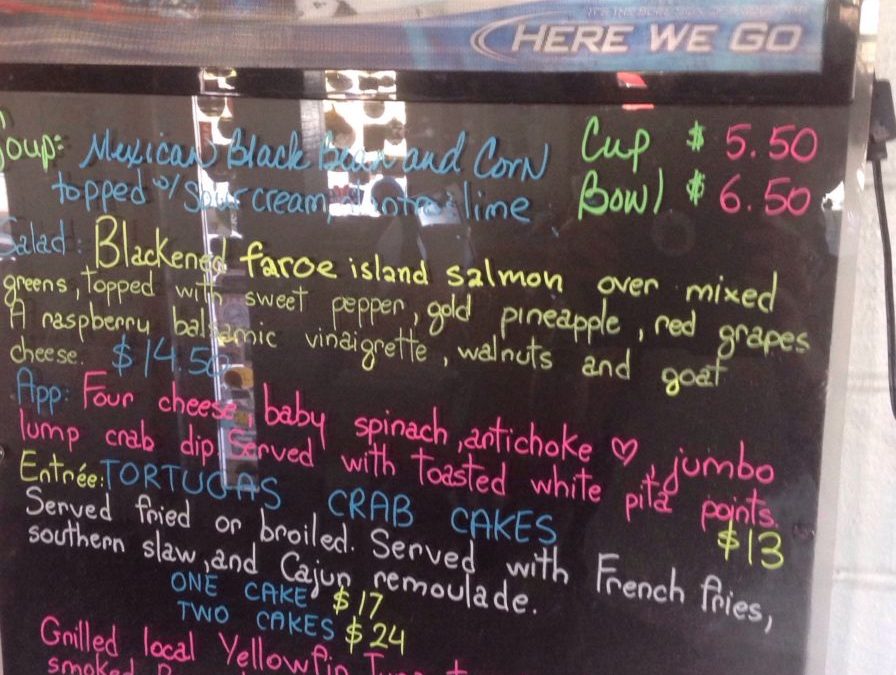 HERE WE GO
Soup: Mexican Black Bean and Corn Cup $ 5.50
topped w/ Sour cream, lime Bowl $ 6.50
Salad: Blackened faroe island salmon over mixed
greens, topped with sweet pepper, gold pineapple, red grapes
A raspberry balsamic vinaigrette, walnuts and goat
cheese. $14.50
App: Four cheese, baby spinach, antichoke ♡, jumbo
lump crab dip Served with toasted white pita points.
$13
Entrée: TORTUGAS CRAB CAKES
Served fried or broiled. Served with French fries,
southern slaw, and Cajun remoulade.
ONE CAKE $17
TWO CAKES $24
Grilled local Yellowfin
smoked